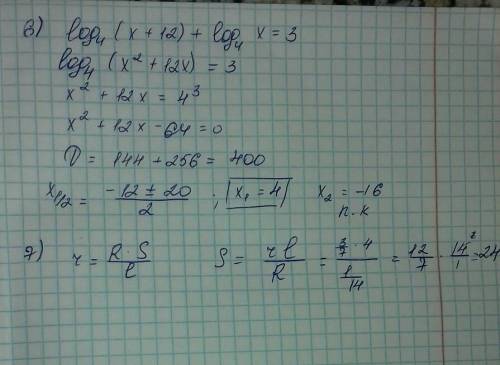 3) log₄ (x + 12) + log₄ x = 3
log₄ (x² + 12x) = 3
x² + 12x = 4³
x² + 12x - 64 = 0
D = 144 + 256 = 400
x₁/₂ = (-12 ± 20)/2 ; x₁ = 4 x₂ = -16
п.к
7) r = (R · S)/l S = (r l)/R = (3/7 · 4)/(1/14) = 12/7 · 14²/1 = 24